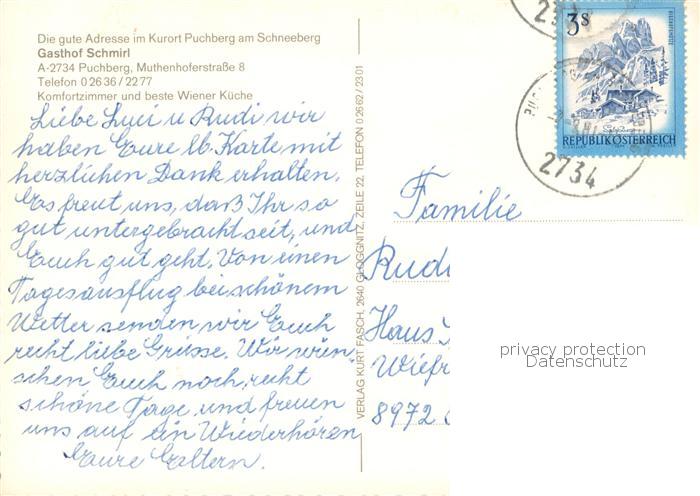 Die gute Adresse im Kurort Puchberg am Schneeberg
Gasthof Schmirl
A-2734 Puchberg, Muthenhoferstraße 8
Telefon 0 26 36 / 22 77
Komfortzimmer und beste Wiener Küche
Liebe Luci u. Rudi wir
haben Eure lb. Karte mit
herzlichen Dank erhalten.
Es freut uns, daß Ihr so
gut untergebracht seit, und
Euch gut geht. Von einen
Tagesausflug bei schönem
Wetter senden wir Euch
recht liebe Grüsse. Wir wün-
schen Euch noch recht
schöne Tage und freuen
uns auf ein Wiederhören
Eure Eltern.
VERLAG KURT FASCH, 2640 GLOGGNITZ, ZEILE 22, TELEFON 0 26 62 / 23 01
3 S
REPUBLIK ÖSTERREICH
2734
Familie
Rudi
Haus
8972
privacy protection
Datenschutz